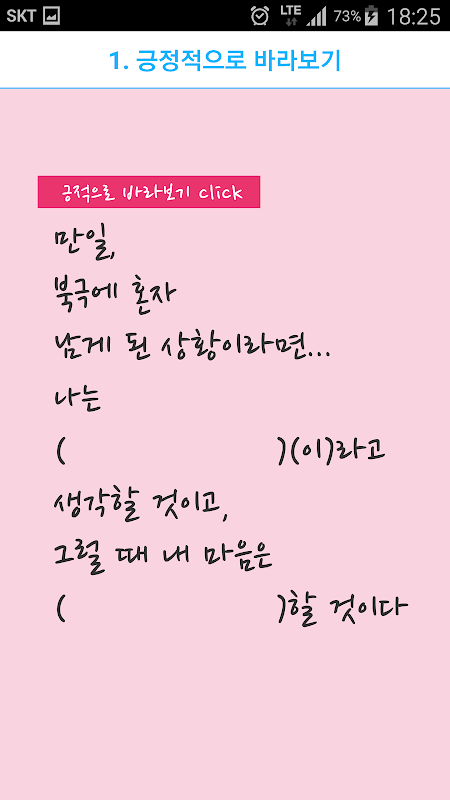 SKT LTE 73% 18:25
1. 긍정적으로 바라보기
긍적으로 바라보기 click
만일,
북극에 혼자
남게 된 상황이라면...
나는
( )(이)라고
생각할 것이고,
그럴 때 내 마음은
( )할 것이다